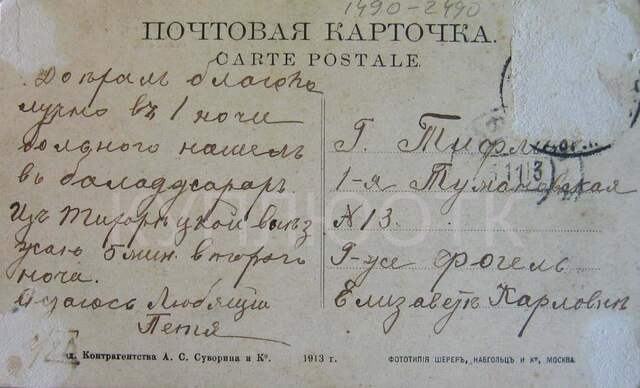 1490-2490
ПОЧТОВАЯ КАРТОЧКА.
CARTE POSTALE.
Доѣхалъ благопо
лучно въ 1 ночи
нашелъ
въ
Изъ Тихорѣцкой выѣз
жаю 5 мин. второго
ночи.
Остаюсь Любящій
Петя
Г. Тифлисъ
1-я Тумановская
№ 13.
Г-жѣ Фогель
Елизаветѣ Карловнѣ
Контрагентства А. С. Суворина и Кº. 1913 г.
ФОТОТИПІЯ ШЕРЕРЪ, НАБГОЛЬЦЪ и Кº, МОСКВА.